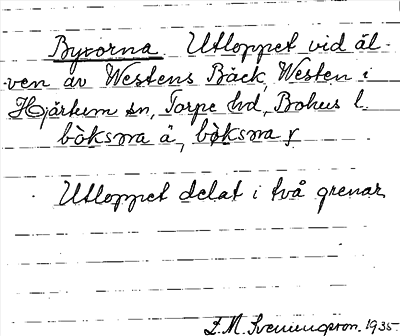 Byxorna. Utloppet vid äl-
ven av Westens Bäck, Westen i
Hjärtum sn, Torpe hd, Bohus l.
Utloppet delat i två grenar
1935